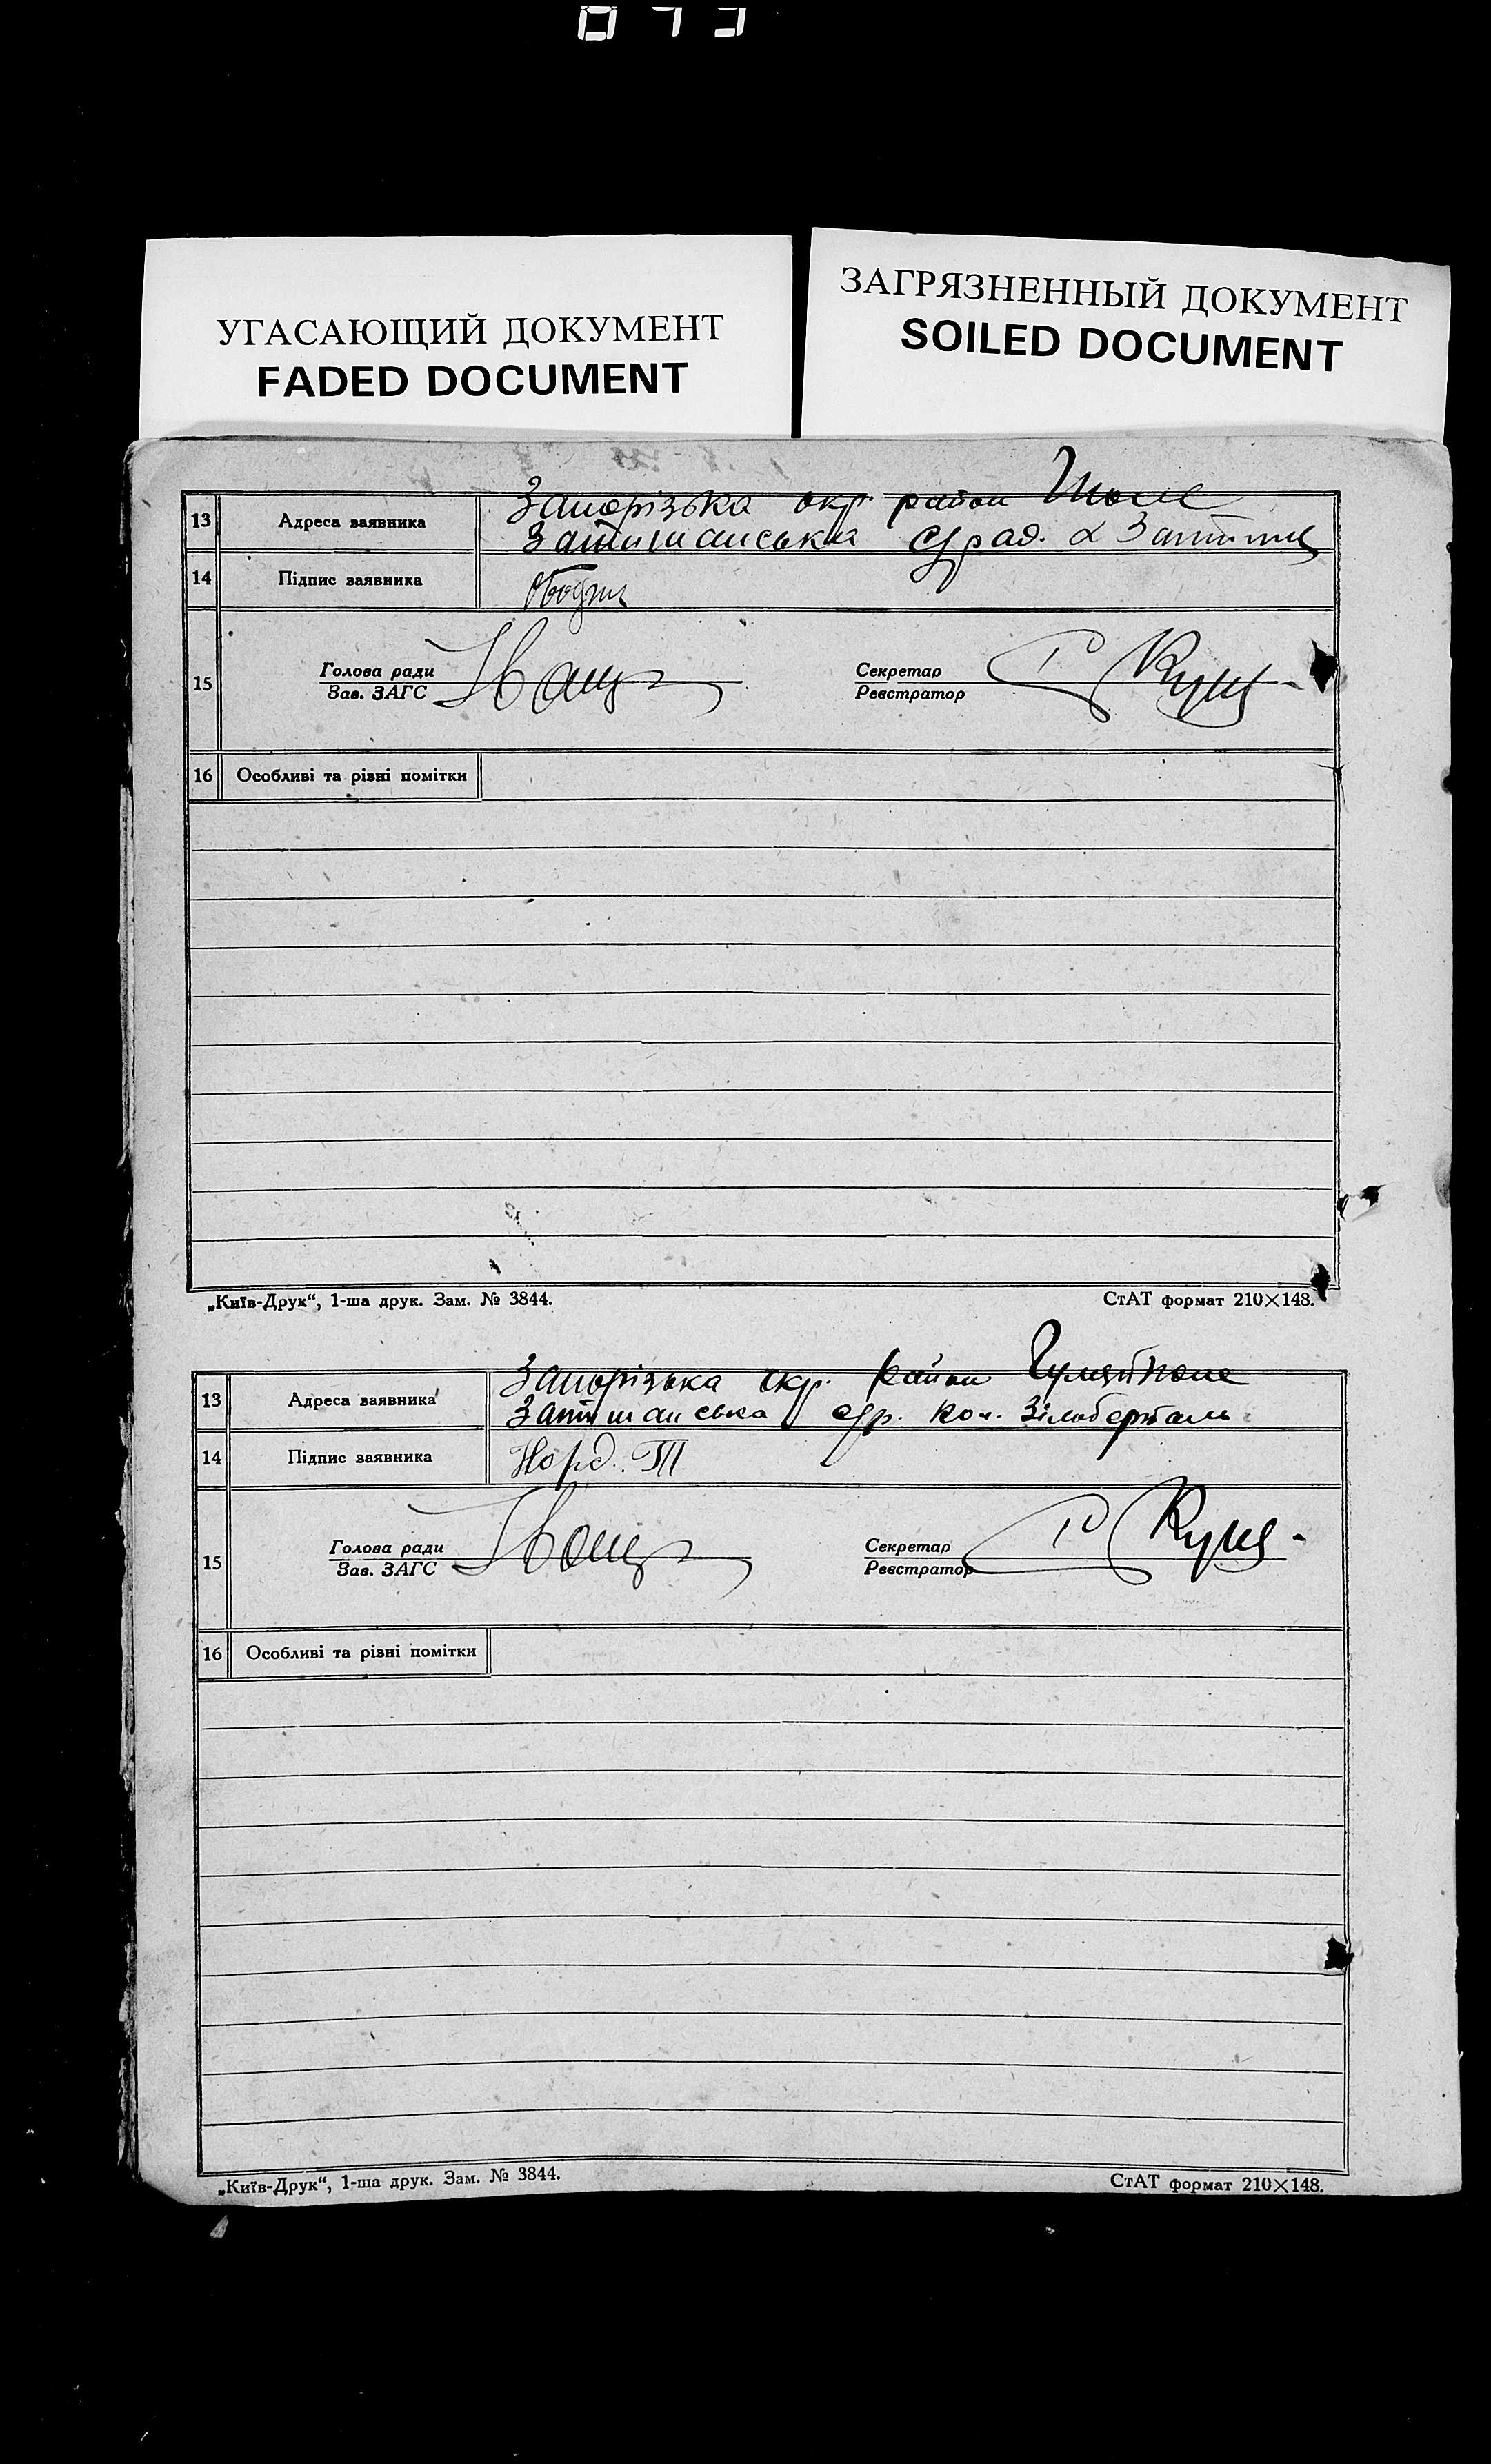 УГАСАЮЩИЙ ДОКУМЕНТ
FADED DOCUMENT
ЗАГРЯЗНЕННЫЙ ДОКУМЕНТ
SOILED DOCUMENT
13 Адреса заявника Запорізька окр. район
Затишанська с/рад.
14 Підпис заявника
15 Голова ради
Зав. ЗАГС
Секретар
Реєстратор
16 Особливі та різні помітки
„Київ-Друк“, 1-ша друк. Зам. № 3844.
СтАТ формат 210×148.
13 Адреса заявника Запорізька окр. район Гуляйполе
Затишанська с/р. кол. Зільберталь
14 Підпис заявника
15 Голова ради
Зав. ЗАГС
Секретар
Реєстратор
16 Особливі та різні помітки
„Київ-Друк“, 1-ша друк. Зам. № 3844.
СтАТ формат 210×148.